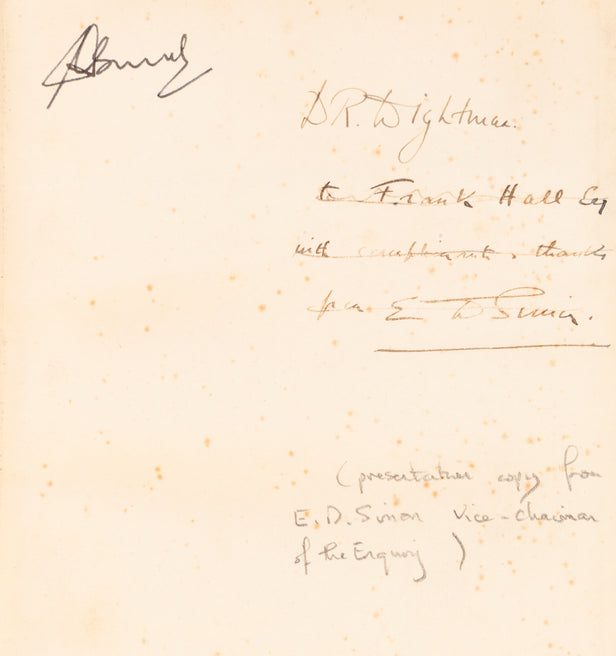 D R. Wightman.
to Frank Hall Esq
with compliments, thanks
from E D Simon.
(presentation copy from
E. D. Simon Vice-Chairman
of the Enquiry)